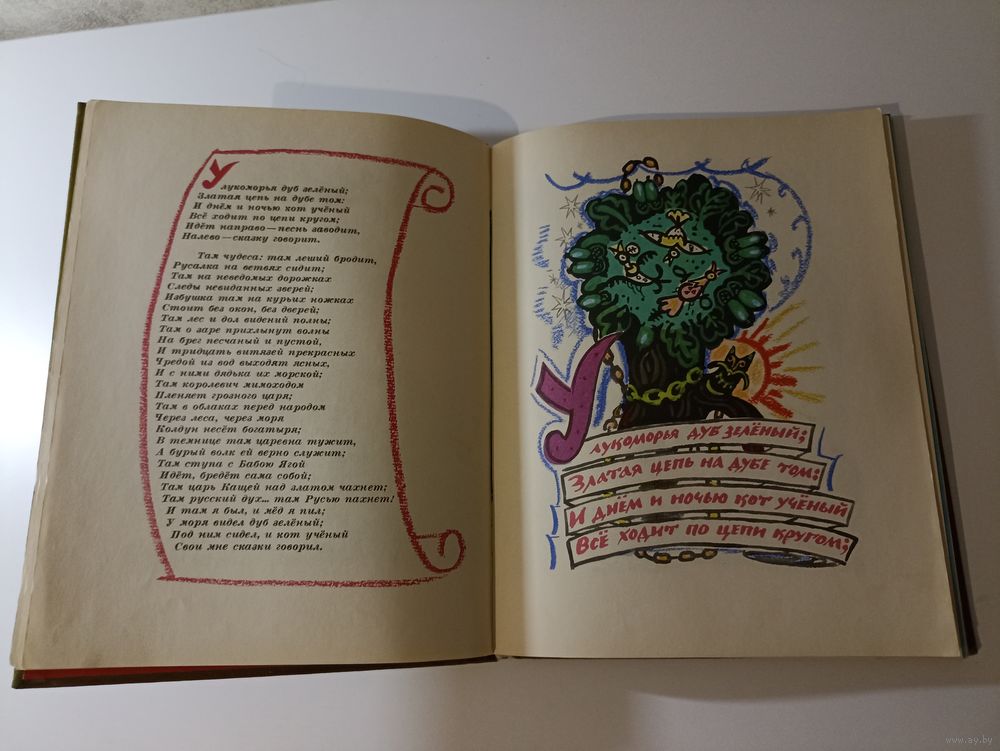 У лукоморья дуб зелёный;
Златая цепь на дубе том:
И днём и ночью кот учёный
Всё ходит по цепи кругом;
Идёт направо — песнь заводит,
Налево — сказку говорит.
Там чудеса: там леший бродит,
Русалка на ветвях сидит;
Там на неведомых дорожках
Следы невиданных зверей;
Избушка там на курьих ножках
Стоит без окон, без дверей;
Там лес и дол видений полны;
Там о заре прихлынут волны
На брег песчаный и пустой,
И тридцать витязей прекрасных
Чредой из вод выходят ясных,
И с ними дядька их морской;
Там королевич мимоходом
Пленяет грозного царя;
Там в облаках перед народом
Через леса, через моря
Колдун несёт богатыря;
В темнице там царевна тужит,
А бурый волк ей верно служит;
Там ступа с Бабою Ягой
Идёт, бредёт сама собой;
Там царь Кащей над златом чахнет;
Там русский дух... там Русью пахнет!
И там я был, и мёд я пил;
У моря видел дуб зелёный;
Под ним сидел, и кот учёный
Свои мне сказки говорил.
У лукоморья дуб зелёный;
Златая цепь на дубе том:
И днём и ночью кот учёный
Всё ходит по цепи кругом;
www.ay.by